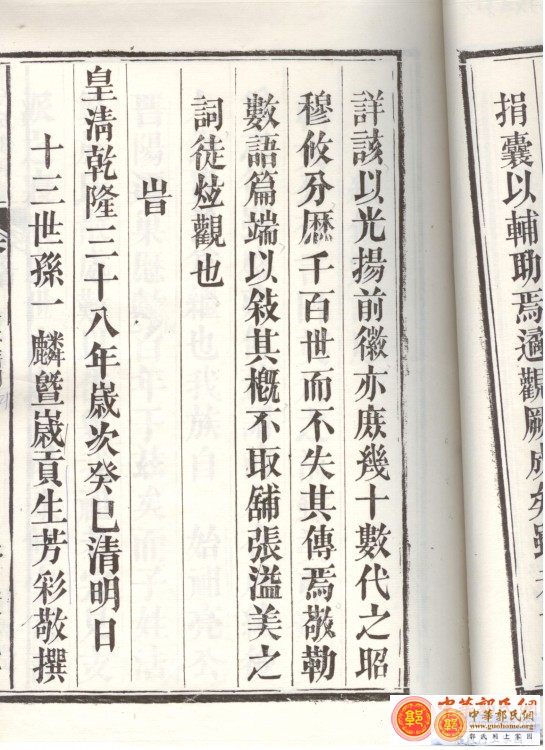 捐囊以輔助焉遍觀厥成矣雖
詳該以光揚前徽亦庶幾十數代之昭
穆攸分歴千百世而不失其傳焉敬勒
數語篇端以敍其槪不取舖張溢美之
詞徒炫觀也
旹
皇清乾隆三十八年嵗次癸巳清明日
十三世孫一麟曁嵗貢生芳彩敬撰
中華郭氏網
www.guohome.org
郭氏網上家園